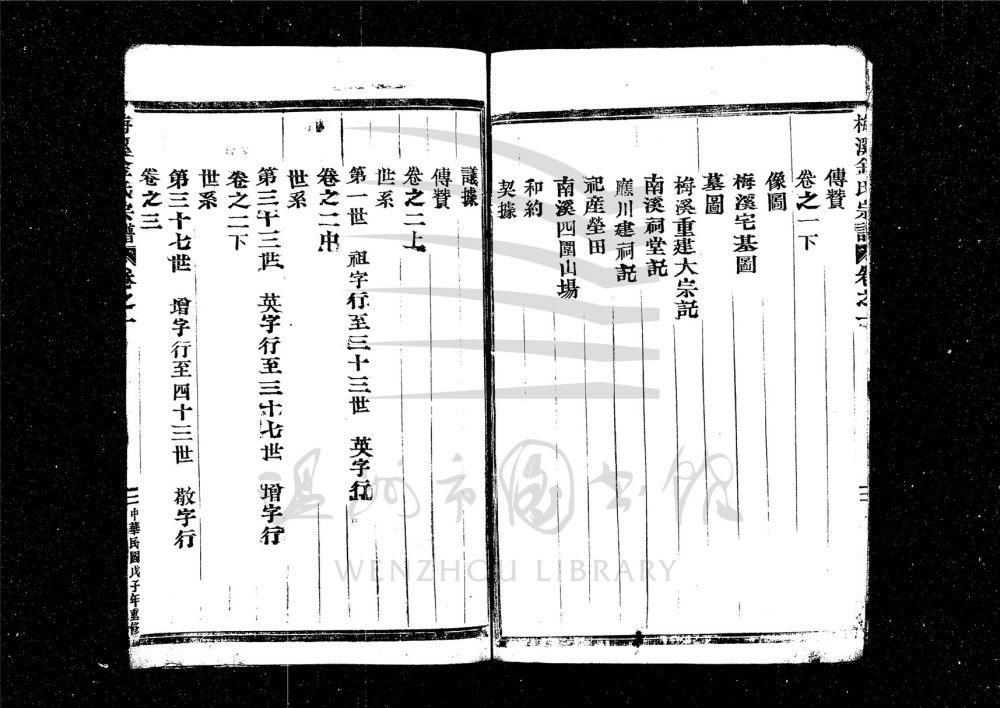 梅溪金氏宗譜 卷之一
傳贊
卷之一下
像圖
梅溪宅基圖
墓圖
梅溪重建大宗記
南溪祠堂記
鴈川建祠記
祀産塋田
南溪四圍山場
和約
契據
議據
傳贊
卷之二上
世系
第一世 祖字行至三十三世 英字行
卷之二中
世系
第三十三世 英字行至三十七世 增字行
卷之二下
世系
第三十七世 增字行至四十三世 散字行
卷之三
梅溪金氏宗譜 卷之一
中華民國戊子年重修
温州市圖書館
WENZHOU LIBRARY